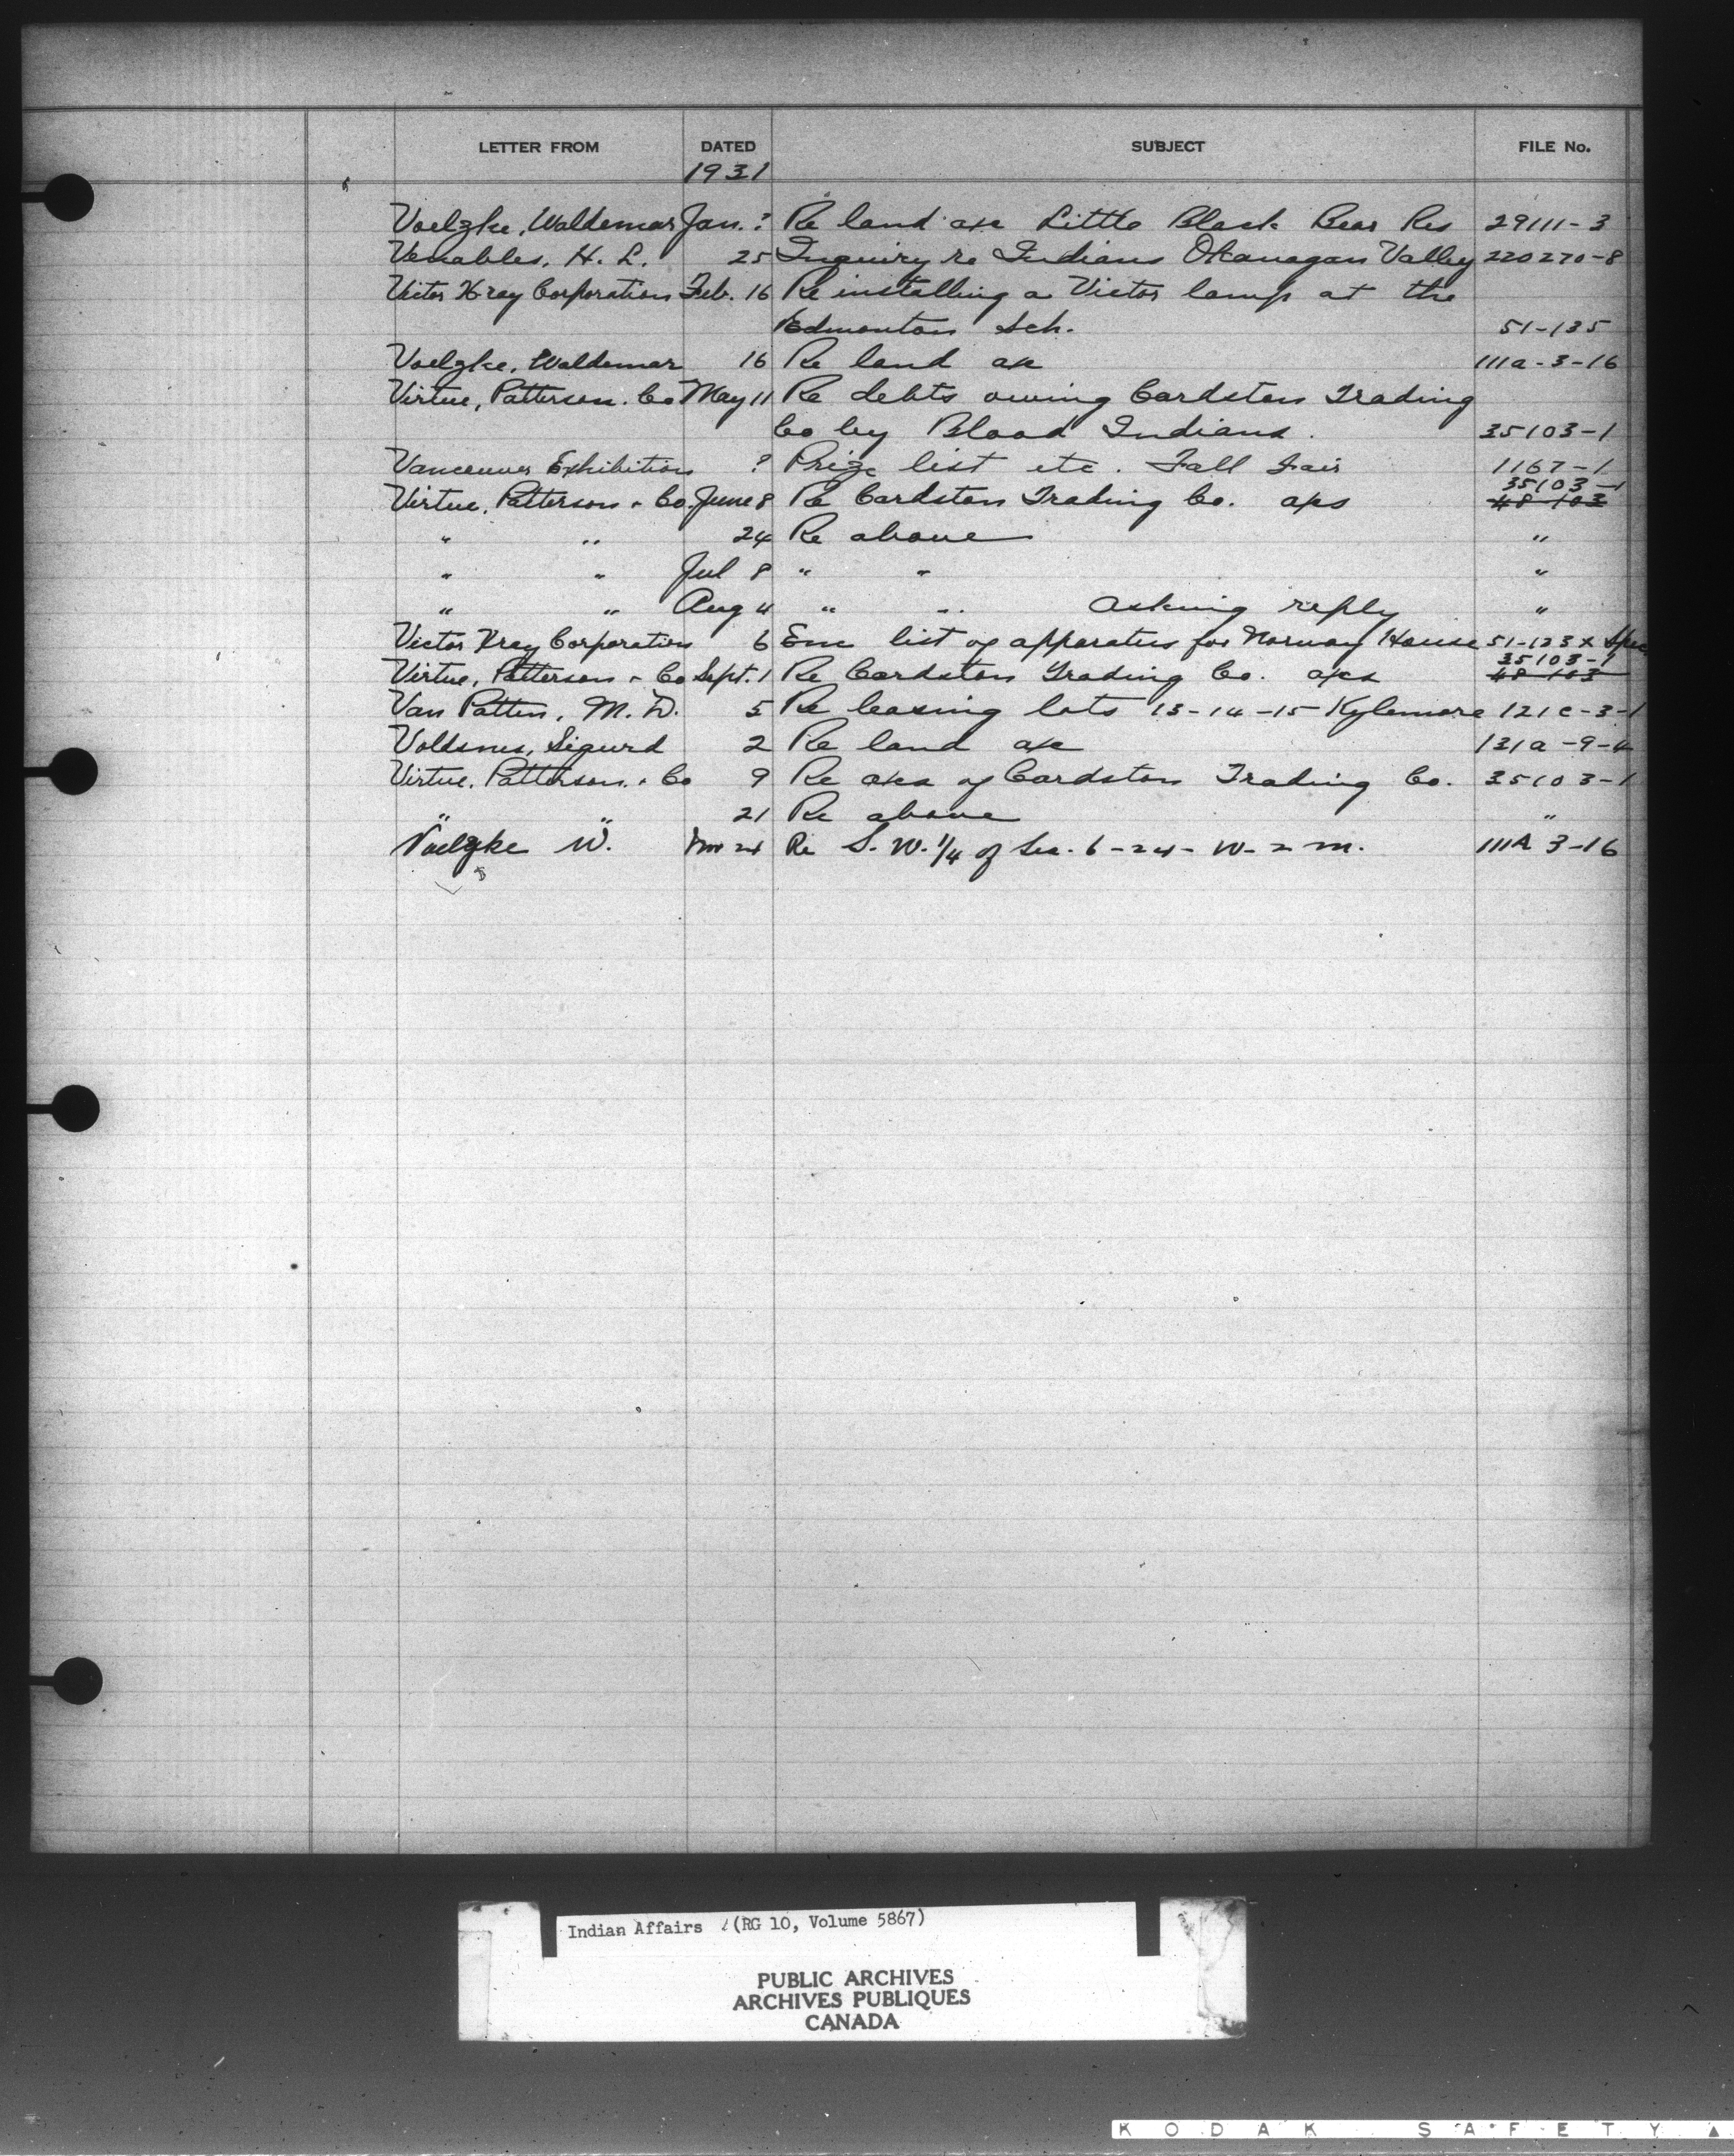 LETTER FROM DATED SUBJECT FILE No.
1931
Voelzke, Waldemar Jan. ? Re land a/c Little Black Bear Res 29111-3
Venables, H. L. 25 Inquiry re Indians Okanagan Valley 220270-8
Victor Xray Corporation Feb. 16 Re installing a Victor lamp at the
Edmonton Sch. 51-135
Voelzke, Waldemar 16 Re land a/c 111a-3-16
Virtue, Patterson. Co May 11 Re debts owing Cardston Trading
Co by Blood Indians. 35103-1
Vancouver Exhibition ? Prize list etc. Fall Fair 1167-1
35103-1
Virtue, Patterson & Co. June 8 Re Cardston Trading Co. a/cs 48-103
" " 24 Re above "
" " Jul 8 " " "
" " Aug 4 " " asking reply "
Victor Xray Corporation 6 Enc list of apparatus for Norway House 51-123 x Spec
35103-1
Virtue, Patterson & Co Sept. 1 Re Cardston Trading Co. a/cs 48-103
Van Patten, M. D. 5 Re leasing lots 13-14-15 Kylemore 121c-3-1
Voldsnes, Sigurd 2 Re land a/c 121a-9-4
Virtue, Patterson. & Co 9 Re a/cs of Cardston Trading Co. 35103-1
" " 21 Re above "
Voelzke W. Nov 24 Re S. W. 1/4 of Sec. 6-24- W-2 m. 111A 3-16
Indian Affairs (RG 10, Volume 5867)
PUBLIC ARCHIVES
ARCHIVES PUBLIQUES
CANADA
KODAK SAFETY